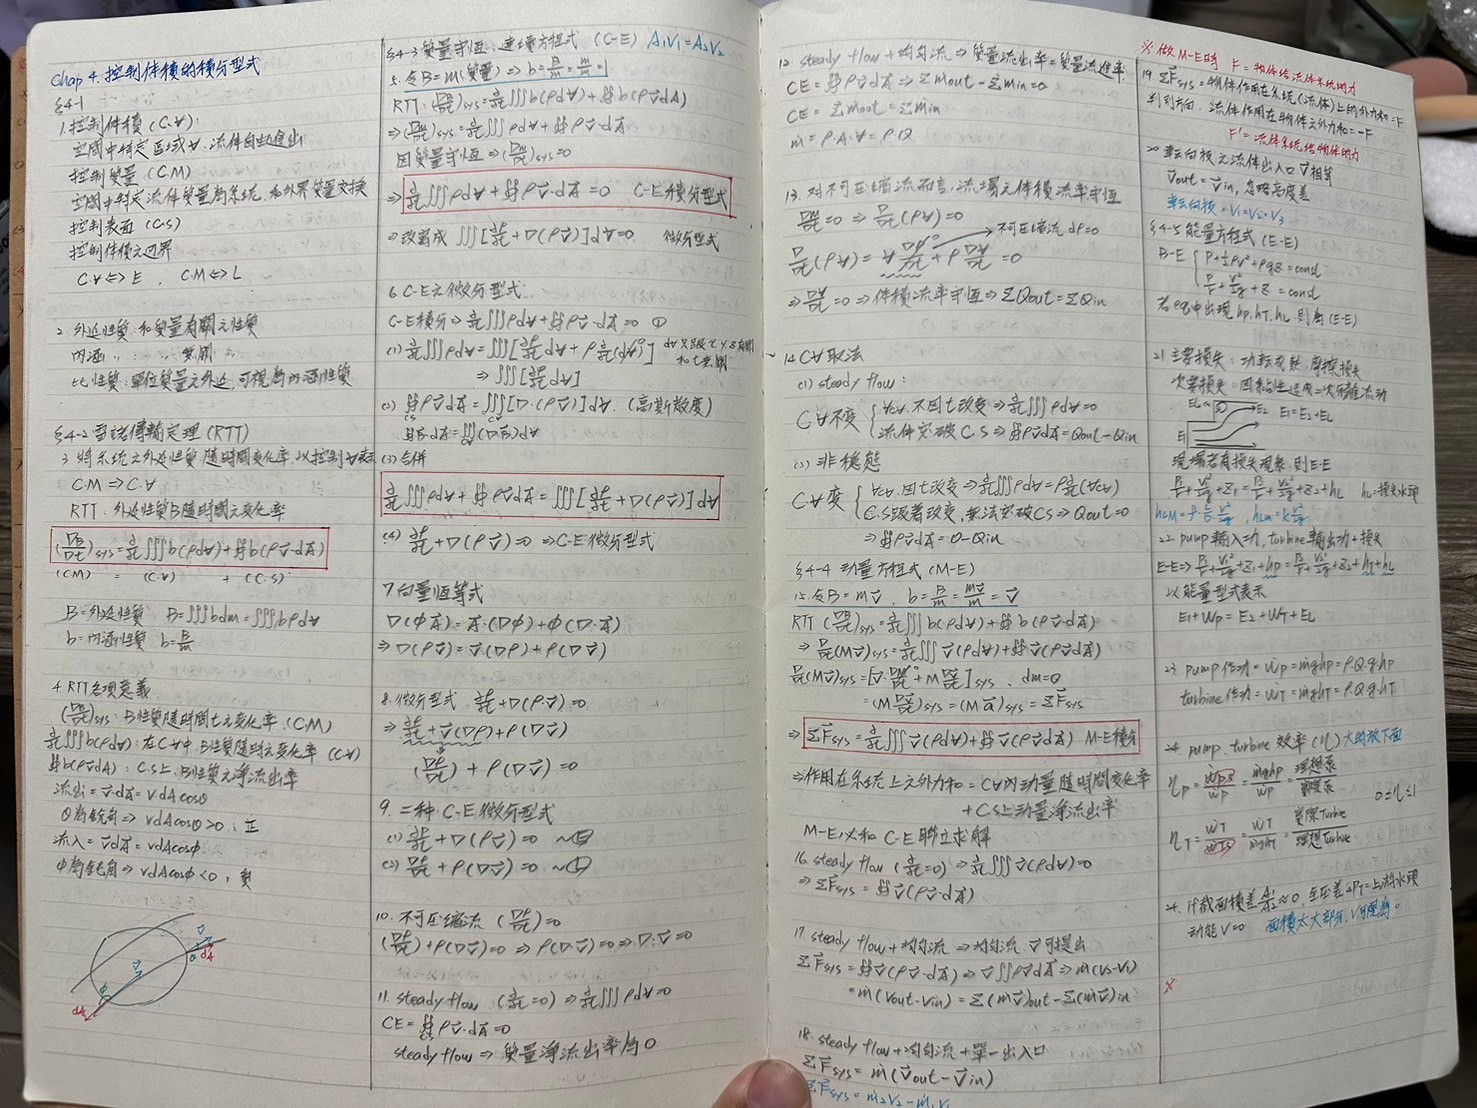 Chap 4 控制体積的積分型式
§4-1
1. 控制体積 (C.∀):
空間中特定區域∀, 流体自由進出
控制質量 (C.M)
空間中特定流体質量為系統, 和外界無質交換
控制表面 (C.S)
控制体積之边界
C.∀ <=> E , C.M <=> L
2. 外延性質: 和質量有關之性質
內涵 〃 : 〃 無關 〃
比性質: 單位質量之外延, 可視為內涵性質
§4-2 雷諾傳輸定理 (RTT)
3. 將系統之外延性質隨時間变化率, 以控制∀表示
C.M => C.∀
RTT: 外延性質B隨時間之变化率
(DB/Dt)sys = ∂/∂t∭b(ρd∀) + ∯b(ρv⃗·dA⃗)
(CM) = (C.∀) + (C.S)
B=外延性質 B=∭bdm=∭bρd∀
b=內涵性質 b=B/m
4. RTT各項定義
(DB/Dt)sys: B性質隨時間t之变化率 (C.M)
∂/∂t∭b(ρd∀): 在C.∀中, B性質隨時之变化率 (C.∀)
∯b(ρv⃗dA⃗): C.S上, B性質之淨流出率
流出 = v⃗·dA⃗ = VdAcosθ
θ為銳角 => VdAcosθ>0, 正
流入 = v⃗dA⃗ = vdAcosφ
φ為鈍角 => vdAcosφ<0, 負
v⃗
θ dA⃗
v⃗
φ
dA⃗
§4-3 質量守恆, 連續方程式 (C-E) A₁V₁=A₂V₂
5. 令B=m(質量) => b=B/m=m/m=1
RTT: (DB/Dt)sys = ∂/∂t∭b(ρd∀) + ∯b(ρv⃗dA⃗)
=> (Dm/Dt)sys = ∂/∂t∭ρd∀ + ∯ρv⃗·dA⃗
因質量守恆 => (Dm/Dt)sys = 0
=> ∂/∂t∭ρd∀ + ∯ρv⃗·dA⃗ = 0 C-E積分型式
=> 改寫成 ∭[∂ρ/∂t + ∇(ρv⃗)]d∀=0 微分型式
6. C-E之微分型式
C-E積分 => ∂/∂t∭ρd∀ + ∯ρv⃗·dA⃗ = 0 ①
(1) ∂/∂t∭ρd∀ = ∭[∂ρ/∂t d∀ + ρ ∂/∂t(d∀)⁰] d∀只跟x.y.z有關
和t無關
=> ∭[∂ρ/∂t d∀]
(2) ∯ρv⃗dA⃗ = ∭[∇·(ρv⃗)]d∀. (高斯散度)
∯B⃗·dA⃗ = ∭(∇·B⃗)d∀
(3) 合併
∂/∂t∭ρd∀ + ∯ρv⃗dA⃗ = ∭[∂ρ/∂t + ∇(ρv⃗)]d∀
(4) ∂ρ/∂t + ∇(ρv⃗)=0 => C-E微分型式
7. 向量恆等式
∇(φA⃗) = A⃗·(∇φ) + φ(∇·A⃗)
=> ∇(ρv⃗) = v⃗·(∇ρ) + ρ(∇v⃗)
8. 微分型式 ∂ρ/∂t + ∇(ρv⃗)=0
=> ∂ρ/∂t + v⃗(∇ρ) + ρ(∇v⃗)
(Dρ/Dt) + ρ(∇v⃗)=0
9. 二种 C-E微分型式
(1) ∂ρ/∂t + ∇(ρv⃗)=0 ~Ⓔ
(2) Dρ/Dt + ρ(∇v⃗)=0 ~Ⓛ
10. 不可压縮流 (Dρ/Dt)=0
(Dρ/Dt) + ρ(∇v⃗)=0 => ρ(∇·v⃗)=0 => ∇·v⃗=0
11. steady flow (∂/∂t=0) => ∂/∂t∭ρd∀=0
CE = ∯ρv⃗·dA⃗ = 0
steady flow => 質量淨流出率為0
12. steady flow + 均匀流 => 質量流出率=質量流進率
CE = ∯ρv⃗dA⃗ => Σṁout - Σṁin = 0
CE = Σṁout = Σṁin
ṁ = ρ·A·v = ρ·Q
13. 对不可压縮流而言, 流場之体積流率守恆
Dm/Dt=0 => D/Dt(ρ∀)=0
D/Dt(ρ∀) = ∀Dρ/Dt⁰ + ρD∀/Dt = 0 不可压縮流 dρ=0
=> D∀/Dt=0 => 体積流率守恆 => ΣQout = ΣQin
14. C∀取法
(1) steady flow:
C∀不变 { ∀cv. 不因t改变 => ∂/∂t∭ρd∀=0
流体突破C.S => ∯ρv⃗dA⃗ = Qout - Qin
(2) 非穩態
C∀变 { ∀cv. 因t改变 => ∂/∂t∭ρd∀ = ρ∂/∂t(∀cv)
C.S跟著改变, 無法突破CS => Qout=0
=> ∯ρv⃗dA⃗ = 0-Qin
§4-4 动量方程式 (M-E)
15. 令B=mv⃗, b=B/m=mv⃗/m=v⃗
RTT (DB/Dt)sys = ∂/∂t∭b(ρd∀) + ∯b(ρv⃗·dA⃗)
=> D/Dt(Mv⃗)sys = ∂/∂t∭v⃗(ρd∀) + ∯v⃗(ρv⃗dA⃗)
D/Dt(Mv⃗)sys = [v⃗·DM/Dt⁰ + M Dv⃗/Dt]sys , dm=0
= (M Dv⃗/Dt)sys = (Ma⃗)sys = ΣF⃗sys
=> ΣF⃗sys = ∂/∂t∭v⃗(ρd∀) + ∯v⃗(ρv⃗dA⃗) M-E積分
=> 作用在系統上之外力和 = C∀內动量隨時間变化率
+ C.S上动量淨流出率
M-E必和 C-E 聯立求解
16. steady flow (∂/∂t=0) => ∂/∂t∭v⃗(ρd∀)=0
=> ΣF⃗sys = ∯v⃗(ρv⃗dA⃗)
17. steady flow + 均匀流 => 均匀流, v⃗可提出
ΣF⃗sys = ∯v⃗(ρv⃗·dA⃗) => v⃗∬ρv⃗dA⃗ => ṁ(V₂-V₁)
= ṁ(Vout-Vin) = Σ(ṁv⃗)out - Σ(ṁv⃗)in
18. steady flow + 均匀流 + 單一出入口
ΣF⃗sys = ṁ(V⃗out - V⃗in)
ΣF⃗sys = ṁ₂V₂ - ṁ₁V₁
※ 做M-E時 F=物体給流体系統的力
19. ΣF⃗sys = 物体作用在系統(流体)上的外力和 = F
判別方向: 流体作用在物体之外力和 = -F
F'=流体系統給物体的力
20. 轉向板之流体出入口v⃗相等
V⃗out = V⃗in, 忽略高度差
轉向板: V₁=V₂=V₃
§4-5 能量方程式 (E-E)
B-E { P+½ρv²+ρgz=const
P/r + V²/2g + z = const
若eq中出現hp.hT.hL 則為(E-E)
21. 主要損失: 摩擦損失
次要損失: 二次分離流动
E₁ E₂ E₁=E₂+EL
現場若有損失現象, 則E-E
P₁/r + V₁²/2g + z₁ = P₂/r + V₂²/2g + z₂ + hL hL=損失水頭
hLM = f·L/D·V²/2g , hLm = kV²/2g
22. pump輸入功, turbine輸出功+損失
E-E => P₁/r + V₁²/2g + z₁ + hp = P₂/r + V₂²/2g + z₂ + hT + hL
以能量型式表示
E₁+Wp = E₂+WT+EL
23. pump作功 = ẇp = ṁghp = ρ.Q.g.hp
turbine作功 = ẇT = ṁghT = ρ.Q.g.hT
24. pump. turbine 效率 (η) 大的放下面
ηp = ẇps/ẇp = ṁghp/ẇp = 理想泵/實際泵
0≤η≤1
ηT = ẇT/ẇTs = ẇT/ṁghT = 實際Turbine/理想Turbine
25. if截面積差 ≈0, 至压差 =上游水頭
动能V=0 面積太大部分, V可視為0